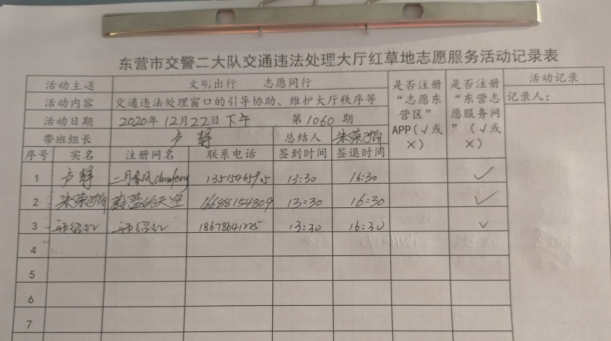 东营市交警二大队交通违法处理大厅红草地志愿服务活动记录表
活动主题 文明出行 志愿同行 是否注册“志愿东营区”APP（√或×） 是否注册“东营志愿服务网”（√或×） 活动记录
活动内容 交通违法处理窗口的引导协助、维护大厅秩序等 记录人：
活动日期 2020年12月22日下午 第1060期
带班组长 卢静 总结人
序号 实名 注册网名 联系电话 签到时间 签退时间
1 卢静 二月春风 13:30 16:30 √
2 16688154809 13:30 16:30 √
3 18678641225 13:30 16:30 √
4
5
6
7